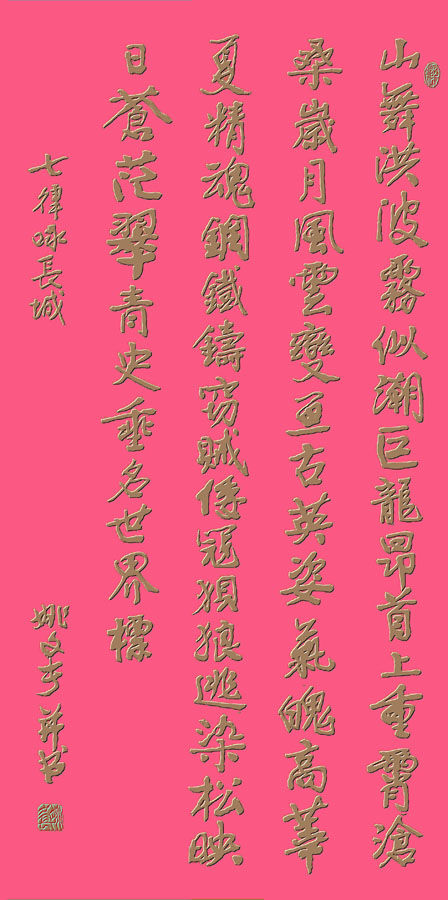 山舞洪波霧似潮巨龍昂首上重霄滄
桑嵗月風雲變亘古英姿氣魄高華
夏精魂鋼鐵鑄窃賊倭冦狽狼逃染松映
日蒼茫翠青史垂名世界標
七律咏長城
姚文 并书